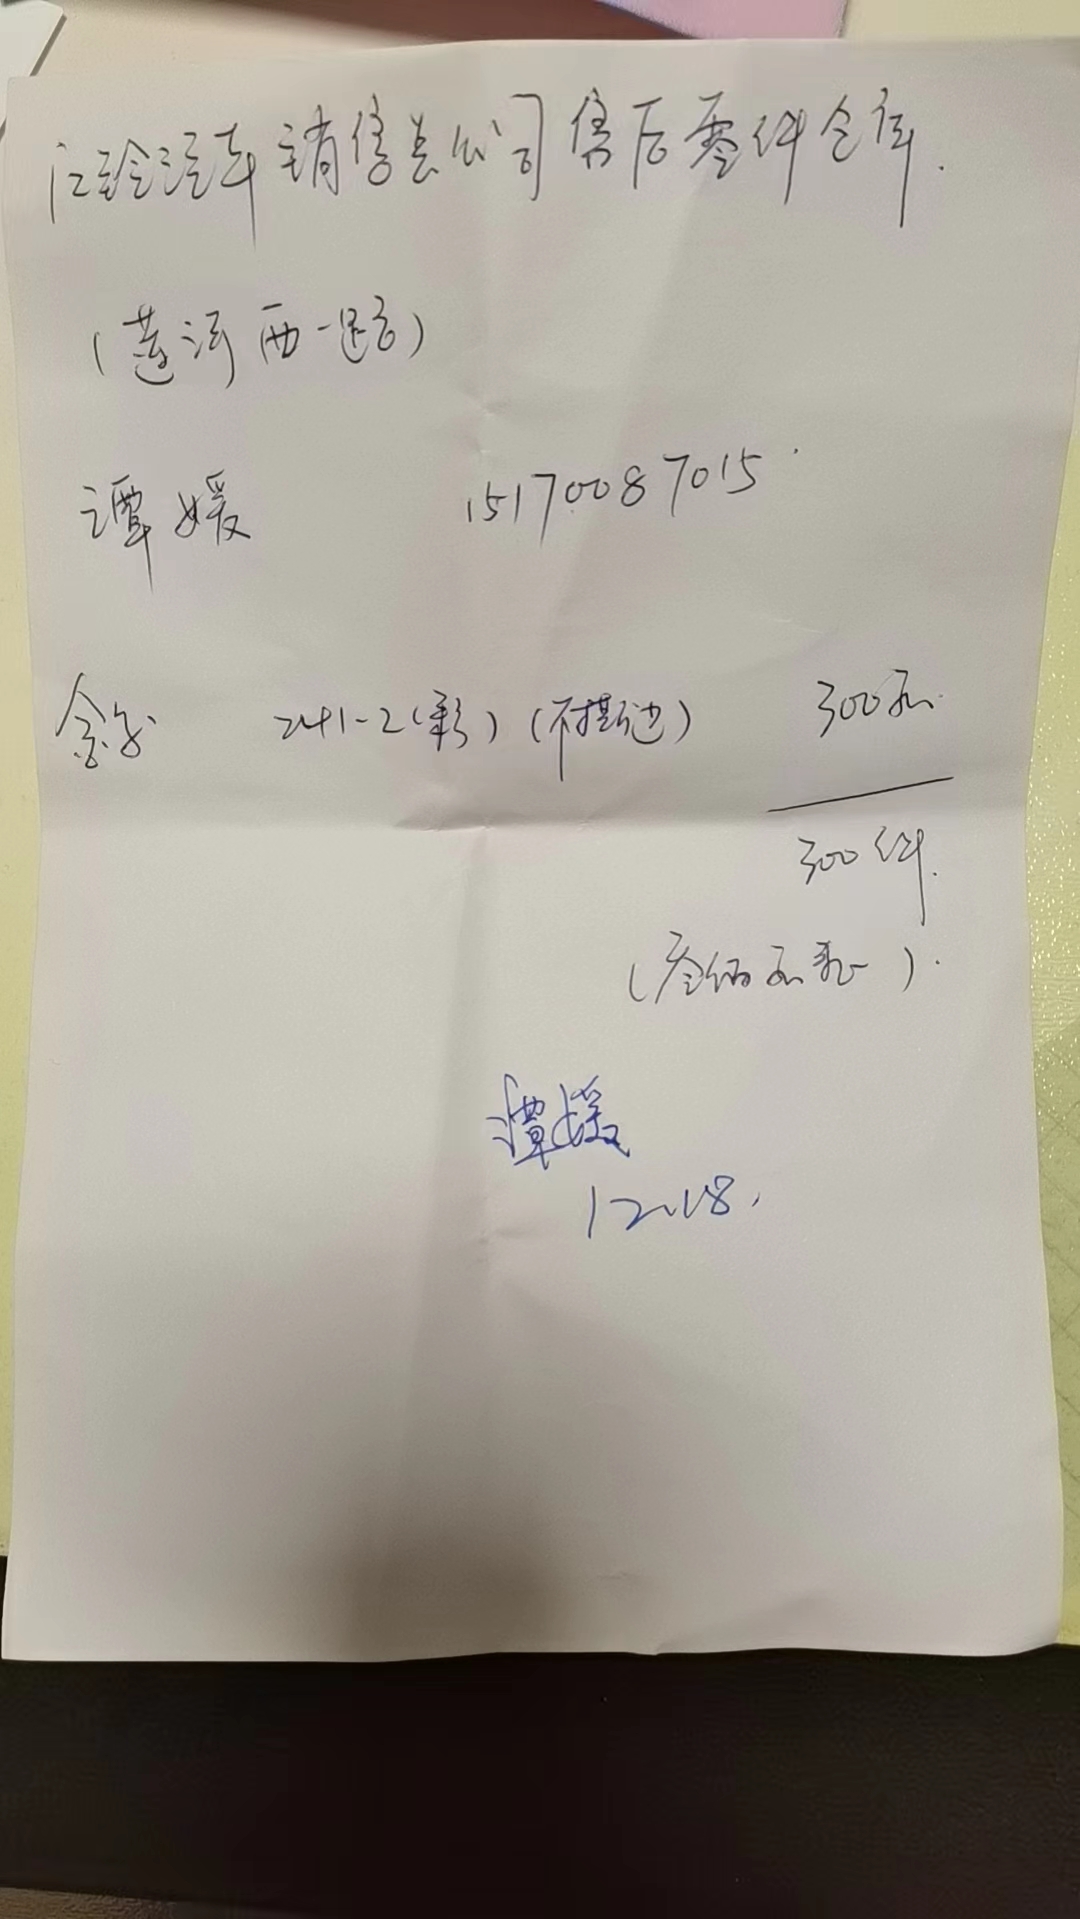 江铃汽车销售总公司售后零件仓库.
(莲河西一路)
谭媛 15170087015
241-2(彩) (不撕边) 300
300件.
(叁佰 整).
谭媛
12.18.